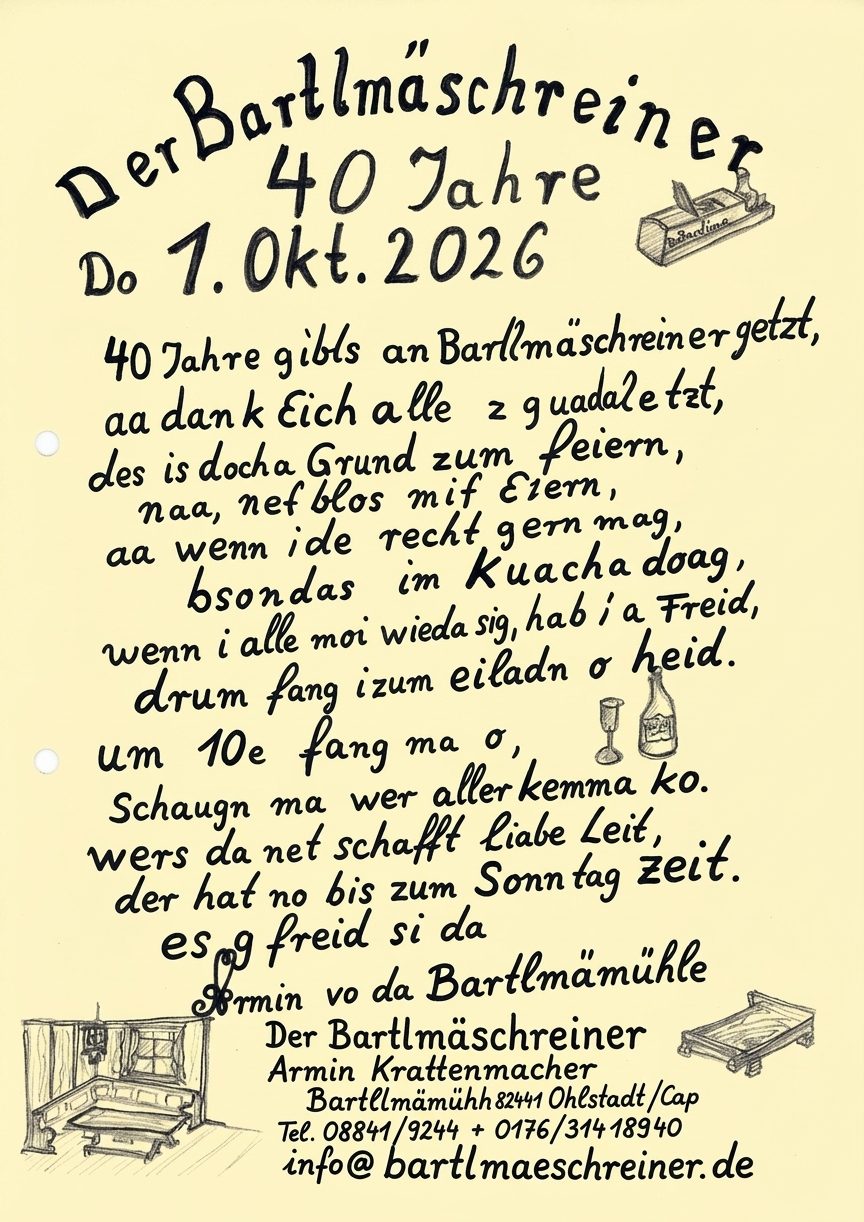 Der Bartlmäschreiner
40 Jahre
Do 1. Okt. 2026
40 Jahre gibts an Bartlmäschreiner getzt,
aa dank Eich alle z guadaletzt,
des is docha Grund zum feiern,
naa, net blos mit Eiern,
aa wenn i de recht gern mag,
bsondas im Kuacha doag,
wenn i alle moi wieda sig, hab i a Freid,
drum fang i zum eiladn o heid.
um 10e fang ma o,
Schaugn ma wer aller kemma ko.
wers da net schafft liabe Leit,
der hat no bis zum Sonntag zeit.
es g freid si da
Armin vo da Bartlmämühle
Der Bartlmäschreiner
Armin Krattenmacher
Bartllmämühh 82441 Ohlstadt/Cap
Tel. 08841/9244 + 0176/31418940
info@bartlmaeschreiner.de